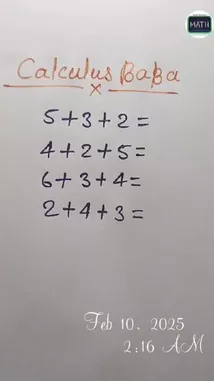 MATH
Calculus Baba
x
5+3+2=
4+2+5=
6+3+4=
2+4+3=
Feb 10, 2025
2:16 AM